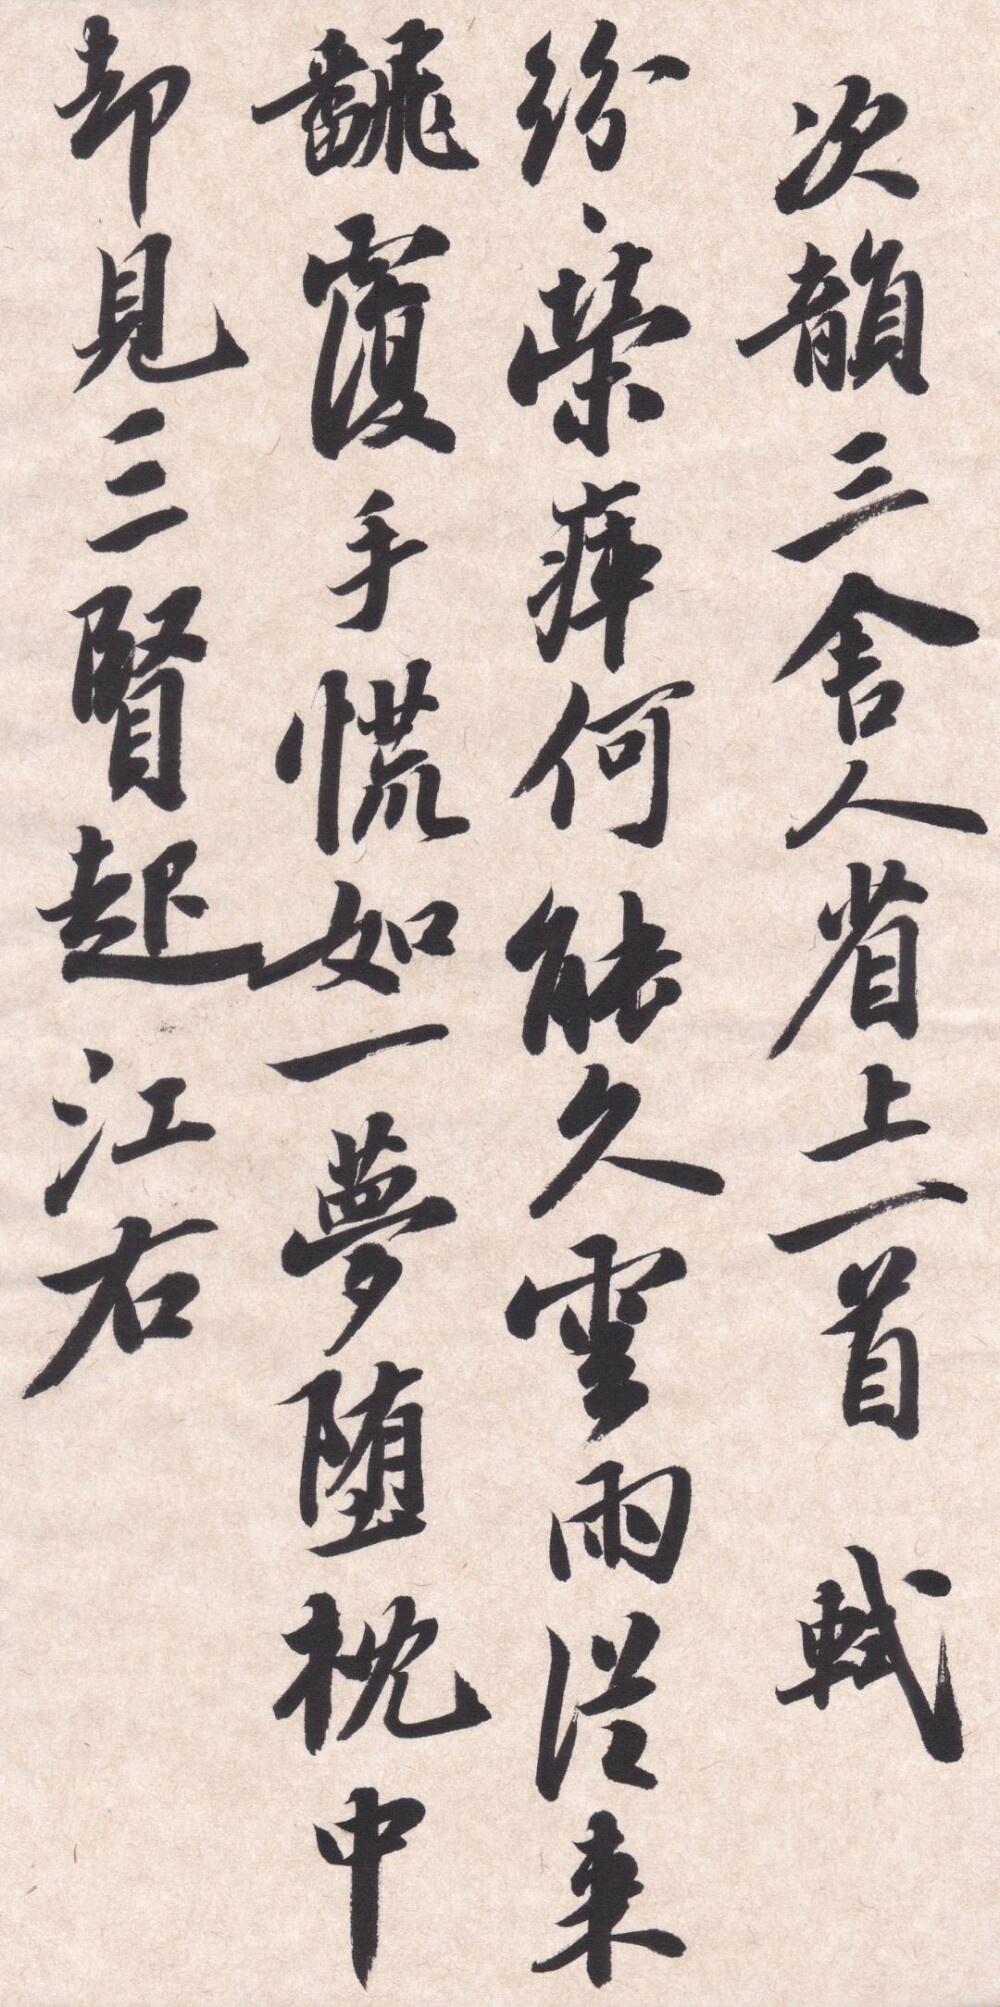 次韻三舍人省上一首 軾
紛榮瘁何能久雲雨從來
翻覆手慌如一夢墮枕中
却見三賢起江右